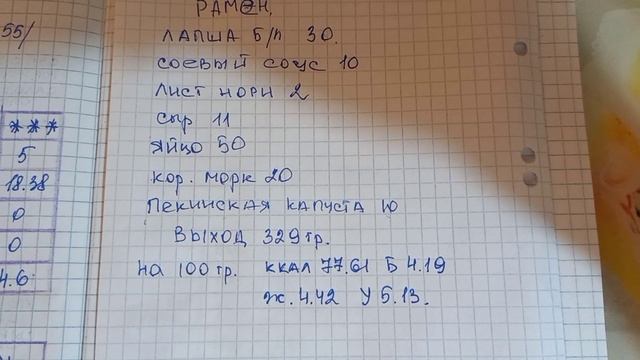 55/
***
5
18.38
0
0
4.6
РАМЕН.
ЛАПША Б/П 30.
СОЕВЫЙ СОУС 10
ЛИСТ НОРИ 2
СЫР 11
ЯЙЦО 50
КОР. МОРК 20
ПЕКИНСКАЯ КАПУСТА 10
ВЫХОД 329 гр.
НА 100 гр. ККАЛ 77.61 Б 4.19
Ж. 4.42 У 5.13.